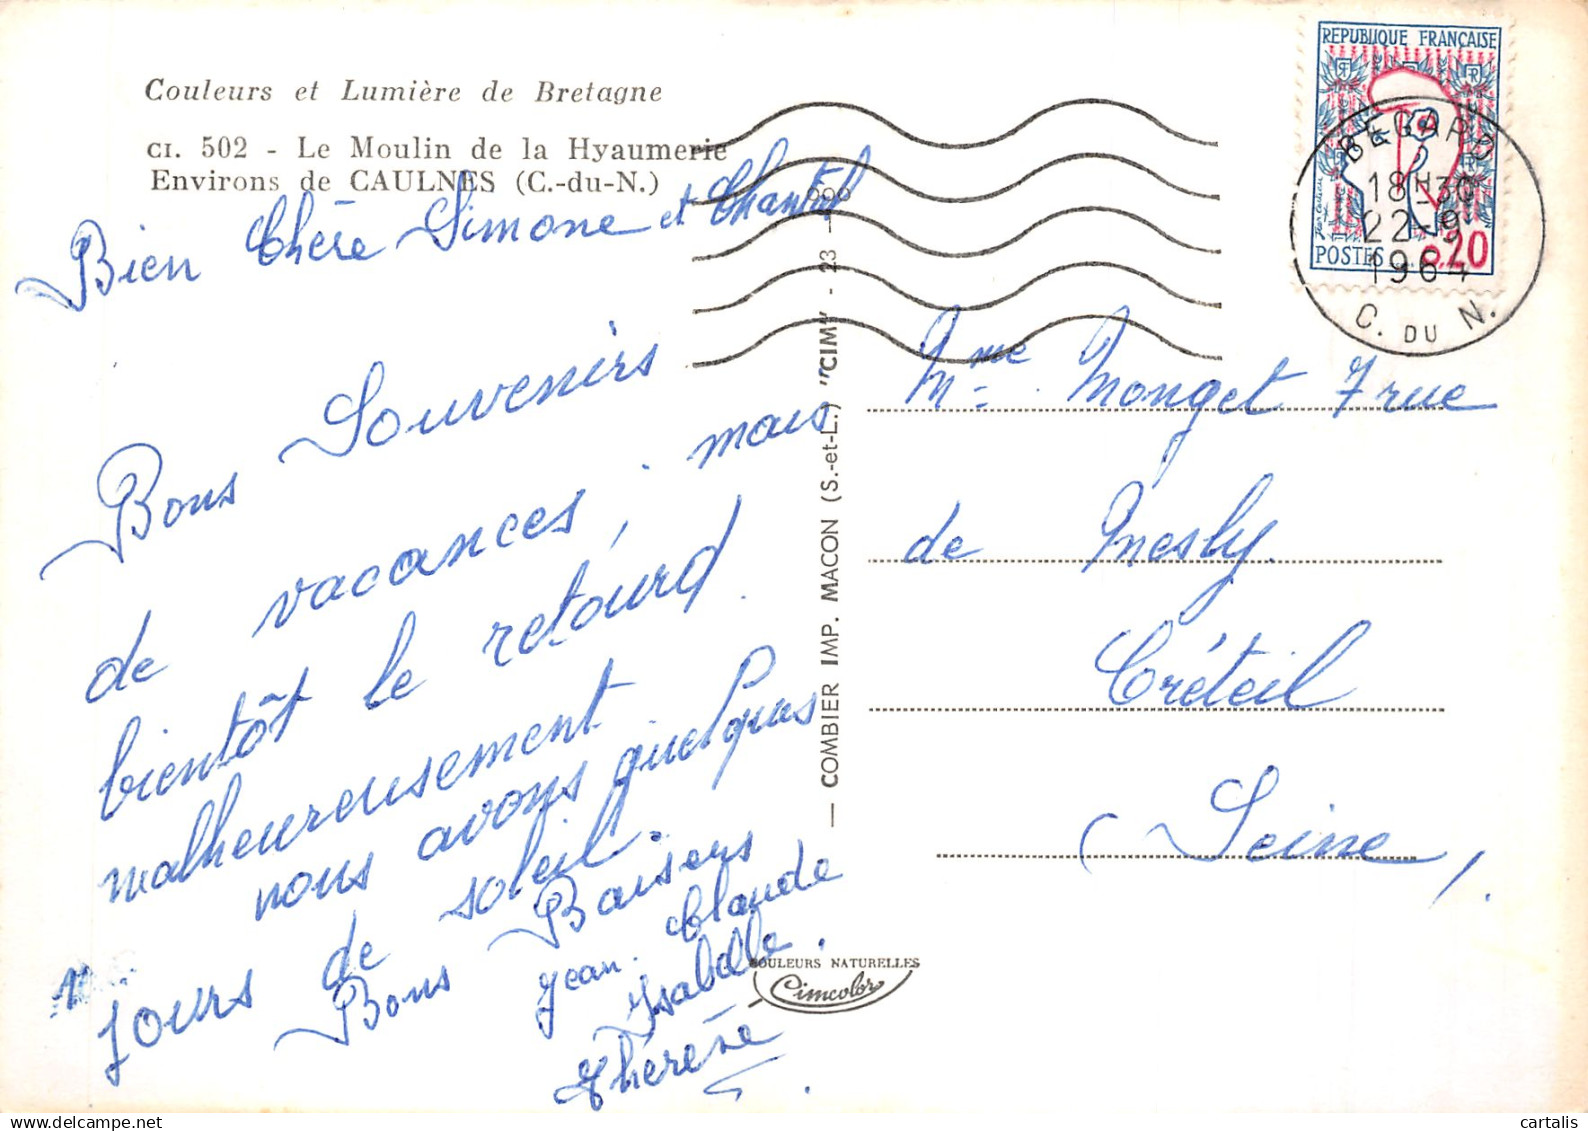 Couleurs et Lumière de Bretagne
CI. 502 - Le Moulin de la Hyaumerie
Environs de CAULNES (C.-du-N.)
Bien Chère Simone et Chantal
Bons Souvenirs
de vacances, mais
bientôt le retourd
malheureusement
nous avons quelques
jours de soleil.
Bons Baisers
Jean. Claude
Isabelle.
Thérèse
— COMBIER IMP. MACON (S.-et-L.) "CIM" - 23
COULEURS NATURELLES
Cimcolor
REPUBLIQUE FRANÇAISE
POSTES 0,20
BEGARD
18H30
22-9
1964
C. DU N.
Mme Monget 7 rue
de Mesly.
Créteil
(Seine,
cartalis
delcampe.net